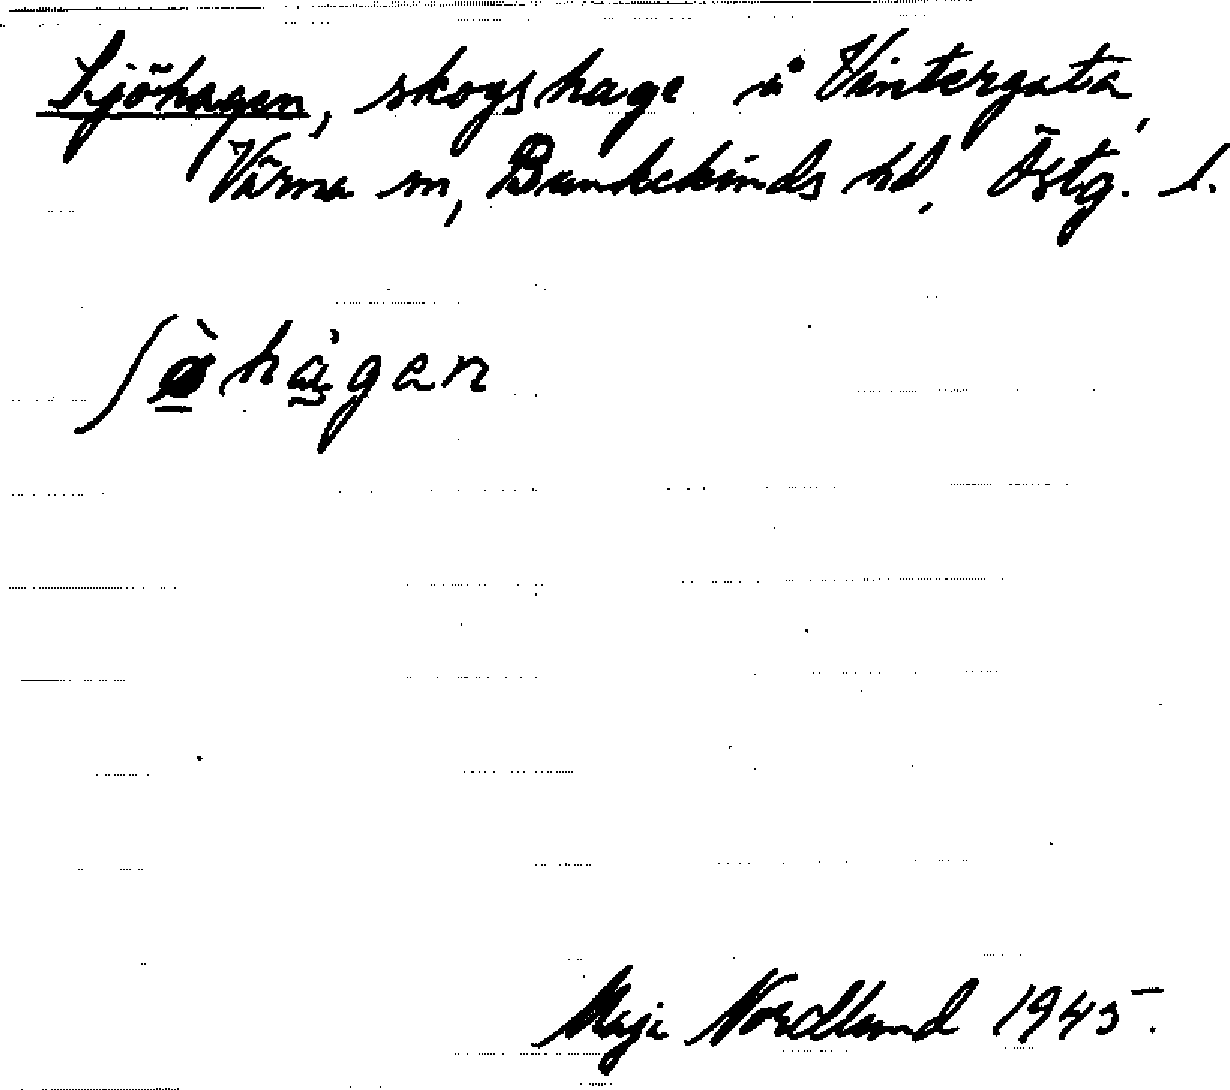 Sjöhagen, skogshage å Vintergata,
Värna sn, Bankekinds hd, Östg. l.
ʃø̀hagen
Maja Nordlund 1945.